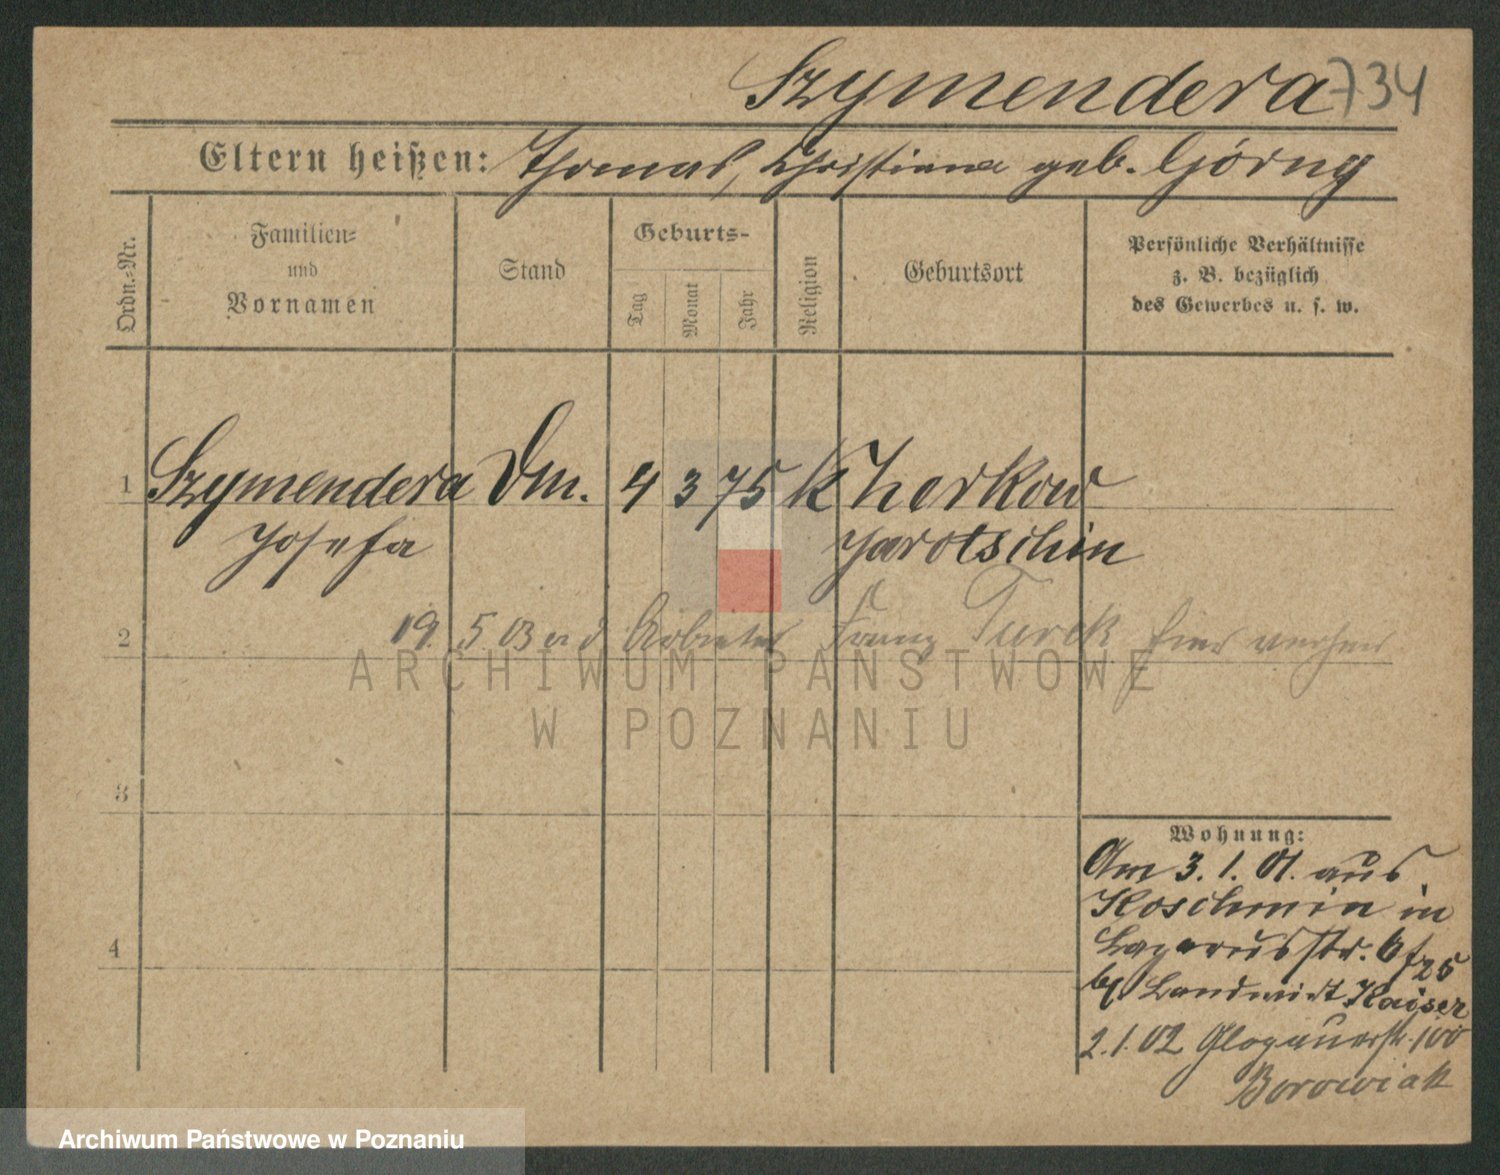 Szymendera 734
Eltern heißen: Thomas, Christiana geb. Górny
Ordn.-Nr.
Familien-
und
Vornamen
Stand
Geburts-
Tag
Monat
Jahr
Religion
Geburtsort
Persönliche Verhältnisse
z. B. bezüglich
des Gewerbes u. s. w.
1 Szymendera Dm. 4 3 75 k Zerkow
Josefa Jarotschin
2 19. 5 03 Arbeiter Franz Turek hier
3
4
Wohnung:
Am 3. 1. 01. aus
Koschmin in
Lazarusstr. 25
b/ Landwirt Kaiser
2. 1. 02 Glogauerstr. 100
Borowiak
ARCHIWUM PAŃSTWOWE
W POZNANIU
Archiwum Państwowe w Poznaniu